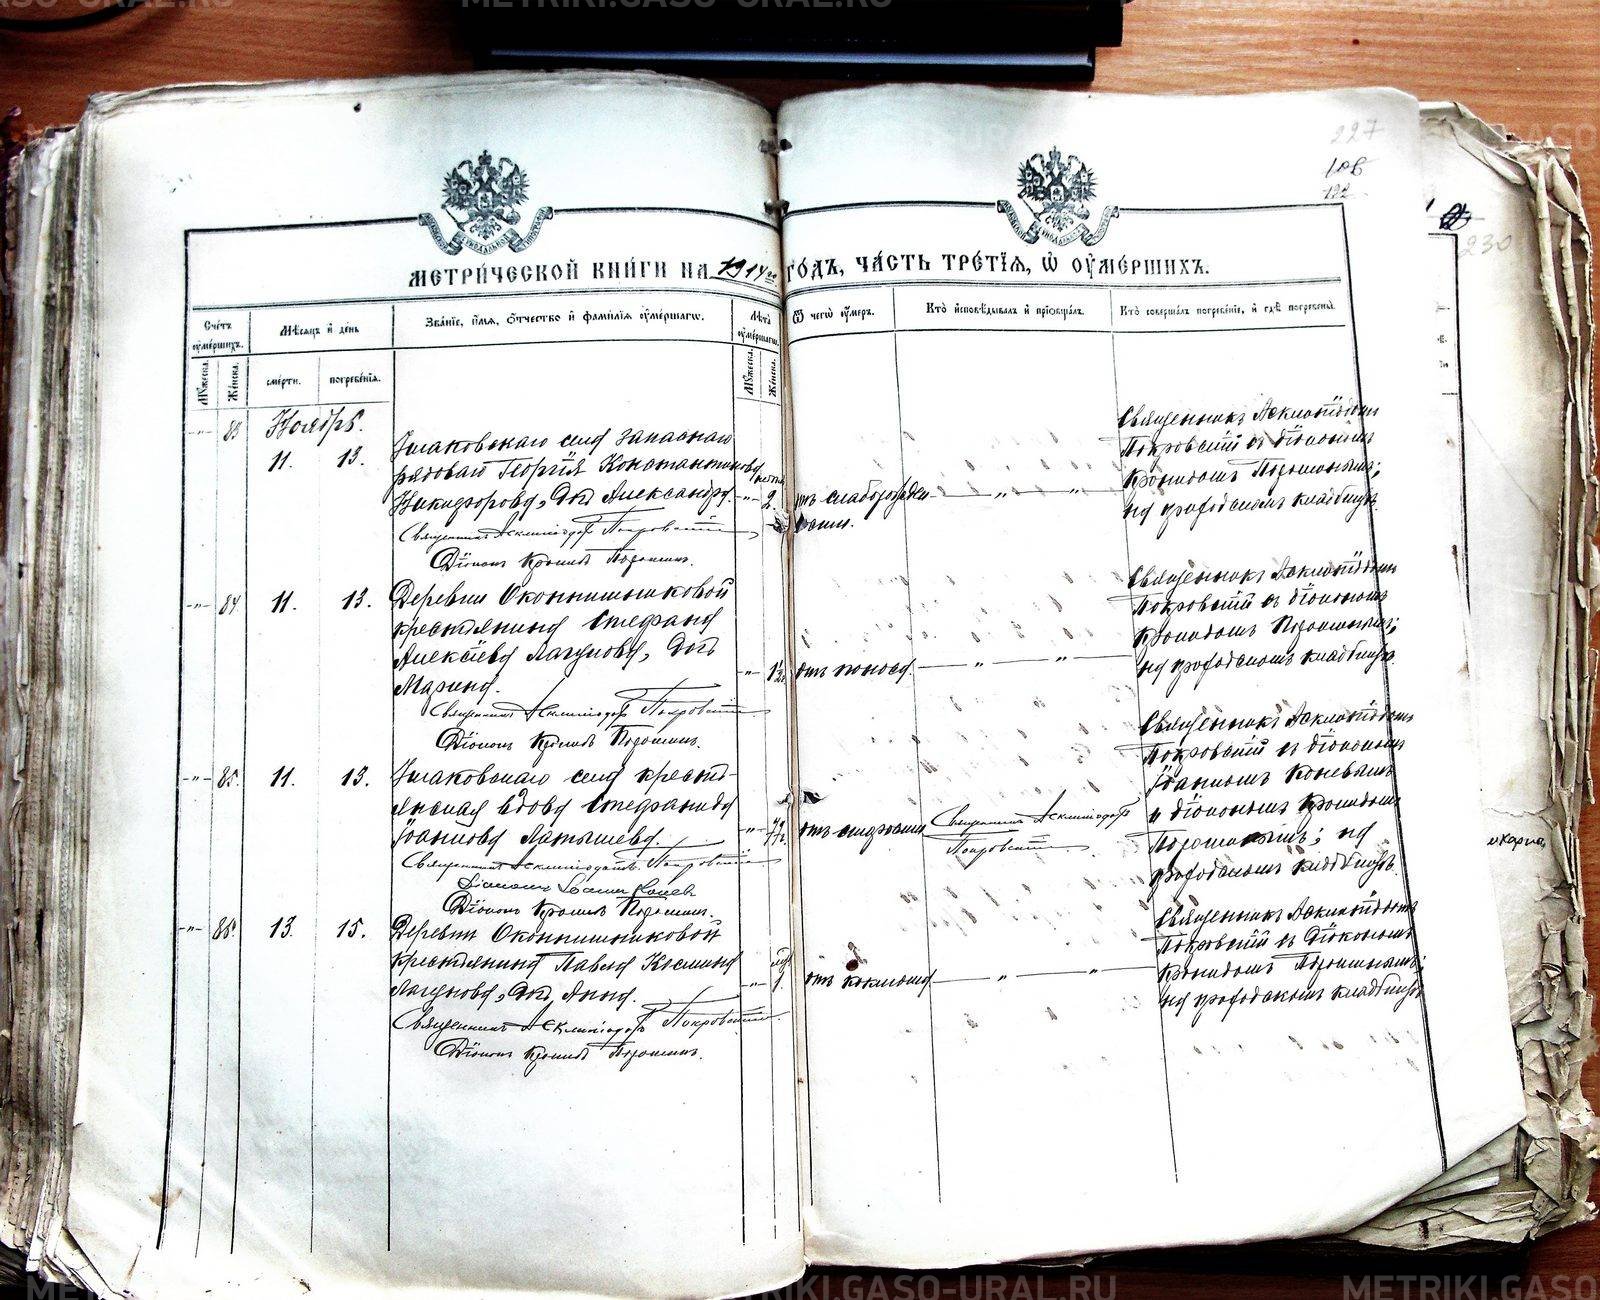 METRIKI.GASO-URAL.RU
227
106
192
230
МЕТРИЧЕСКОЙ КНИГИ НА 1914 ГОДЪ, ЧАСТЬ ТРЕТІЯ, Ѡ ОУМЕРШИХЪ.
Счетъ оумершихъ.
Мѣсяцъ и день
Званіе, имя, отчество и фамилія оумершагѡ.
Лѣта оумершагѡ.
Ѿ чегѡ оумеръ.
Кто исповѣдывалъ и пріобщалъ.
Кто совершалъ погребеніе, и гдѣ погребены.
Мужеска.
Женска.
смерти.
погребенія.
Мужеска.
Женска.
Ноябрь.
83 11. 13.
села запаснаго
рядоваго Георгія Константинова
Никифорова, дочь Александра. 2.
Священникъ Асклипіодотъ Покровскій
Діаконъ Кронидъ
Священникъ Асклипіодотъ
Покровскій съ діакономъ
Кронидомъ
на приходскомъ кладбищѣ.
84 11. 13. Деревни
крестьянина Стефана
Алексіева Лагунова, дочь
Марина.
отъ поноса.
Священникъ Асклипіодотъ Покровскій
Діаконъ Кронидъ
Священникъ Асклипіодотъ
Покровскій съ діакономъ
Кронидомъ
на приходскомъ кладбищѣ.
85. 11. 13. села кресть-
янская вдова Стефанида
Іоаннова Латышева.
отъ старости
Священникъ Асклипіодотъ
Покровскій
Священникъ Асклипіодотъ Покровскій
Діаконъ Іоаннъ Коневъ
Діаконъ Кронидъ
Священникъ Асклипіодотъ
Покровскій съ діакономъ
Іоанномъ Коневымъ
и діакономъ Кронидомъ
на
приходскомъ кладбищѣ.
86. 13. 15. Деревни
крестьянина Павла Космина
Лагунова, дочь Анна. 1.
отъ коклюша
Священникъ Асклипіодотъ Покровскій.
Діаконъ Кронидъ
Священникъ Асклипіодотъ
Покровскій съ Діакономъ
Кронидомъ
на приходскомъ кладбищѣ
METRIKI.GASO-URAL.RU
METRIKI.GASO